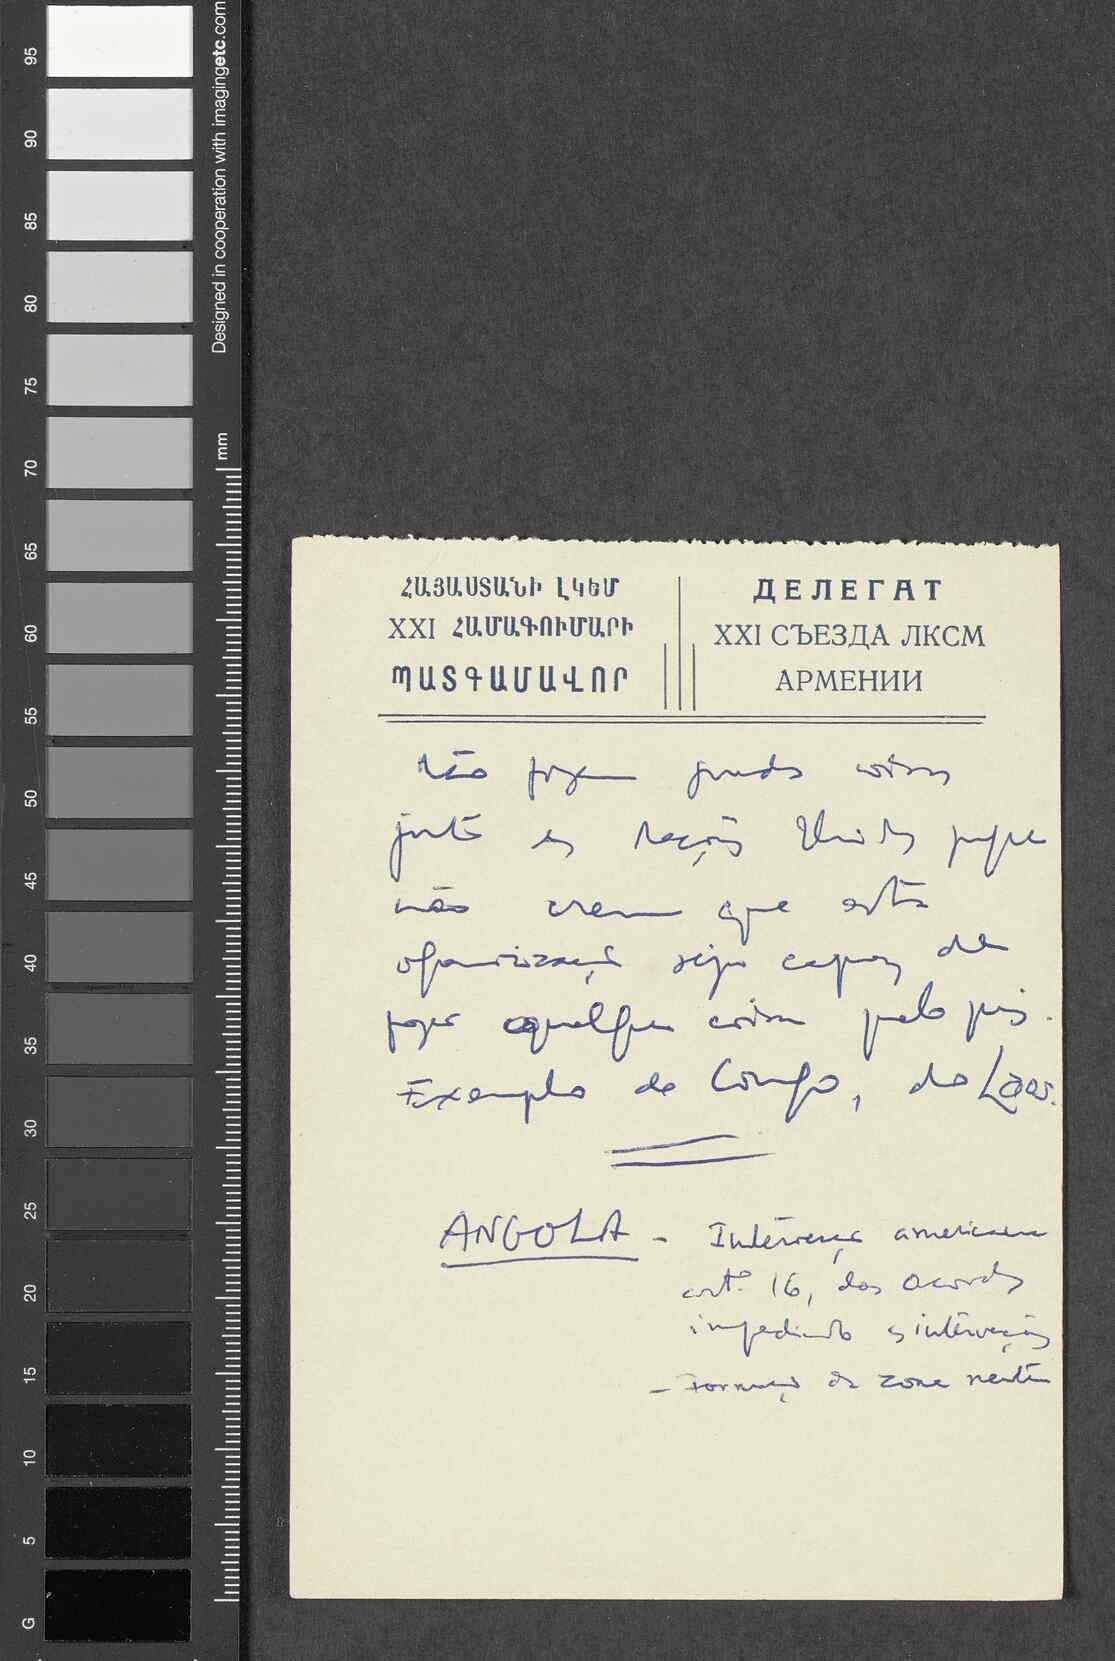 ՀԱՅԱՍՏԱՆԻ ԼԿԵՄ
XXI ՀԱՄԱԳՈՒՄԱՐԻ
ՊԱՏԳԱՄԱՎՈՐ
ДЕЛЕГАТ
XXI СЪЕЗДА ЛКСМ
АРМЕНИИ
Não grande coisa
junto às Nações Unidas porque
não creem que esta
organização seja capaz de
fazer qualquer coisa pelo país.
Exemplo do Congo, do Laos.
ANGOLA - Intervenção americana
artº 16, dos acordos
impedindo as intervenções
- Formação de zona neutra
Designed in cooperation with imagingetc.com
mm
95
90
85
80
75
70
65
60
55
50
45
40
35
30
25
20
15
10
5
G